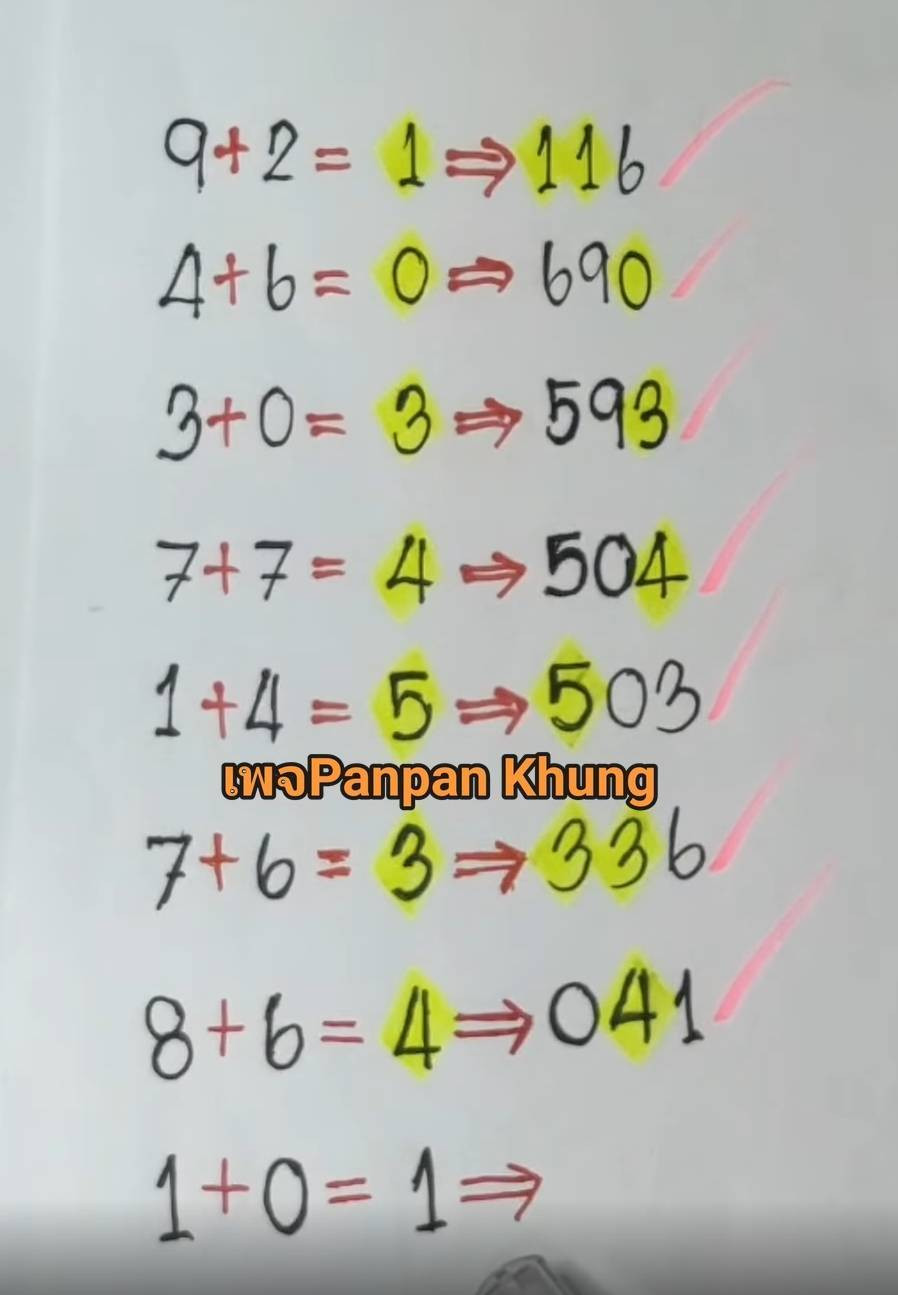 9+2= 1⇒116
4+6= 0⇒690
3+0= 3⇒593
7+7= 4⇒504
1+4= 5⇒503
เพจPanpan Khung
7+6= 3⇒336
8+6= 4⇒041
1+0= 1⇒